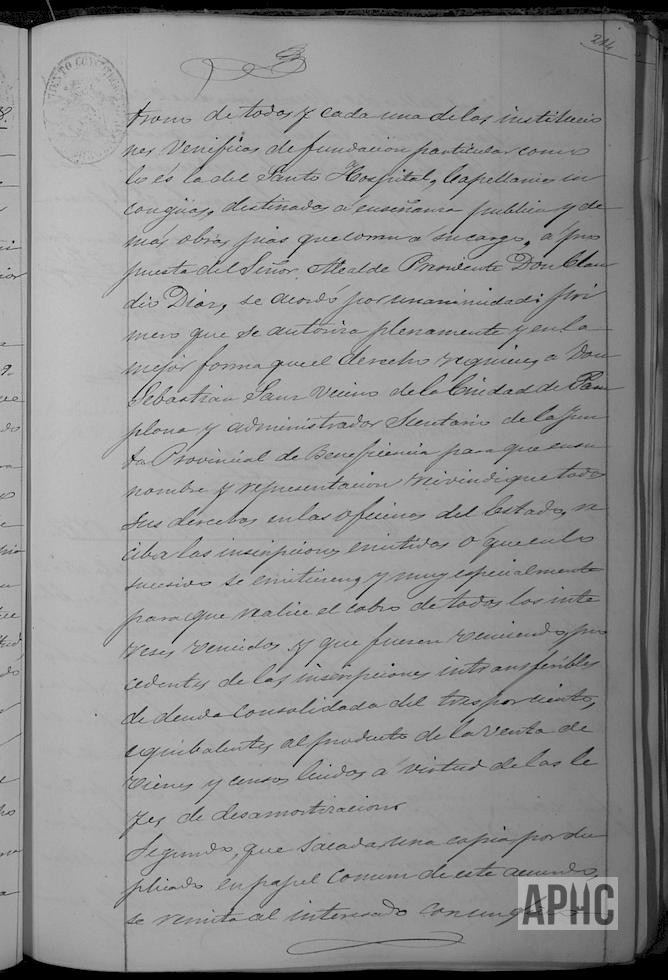 214
trono de todas y cada una de las institucio
nes Veneficas de fundacion particular como
lo es la del Santo Hospital, Capellanias in
congruas, destinadas a enseñanza publica y de
mas obras pias que corren a su cargo, a pro
puesta del Señor Alcalde Presidente Don Clau
dio Diaz, se acordó por unanimidad: pri
mero que se autoriza plenamente y en la
mejor forma que el derecho requiere, a Don
Sebastian Sanz Vecino de la Ciudad de Pam
plona y administrador Secretario de la Jun
ta Provincial de Beneficencia para que en su
nombre y representacion reivindique todos
sus derechos en las oficinas del Estado, re
ciba las inscripciones emitidas o que en lo
sucesivo se emitieren, y muy especialmente
para que realice el cobro de todos los inte
reses vencidos y que fueren venciendo, pro
cedentes de las inscripciones intransferibles
de deuda consolidada del tres por ciento,
equibalentes al producto de la venta de
Vienes y censos a virtud de las le
yes de desamortizacion
Segundo, que sacada una copia por du
plicado en papel comun de este acuerdo,
se remita al interesado con un
APHC